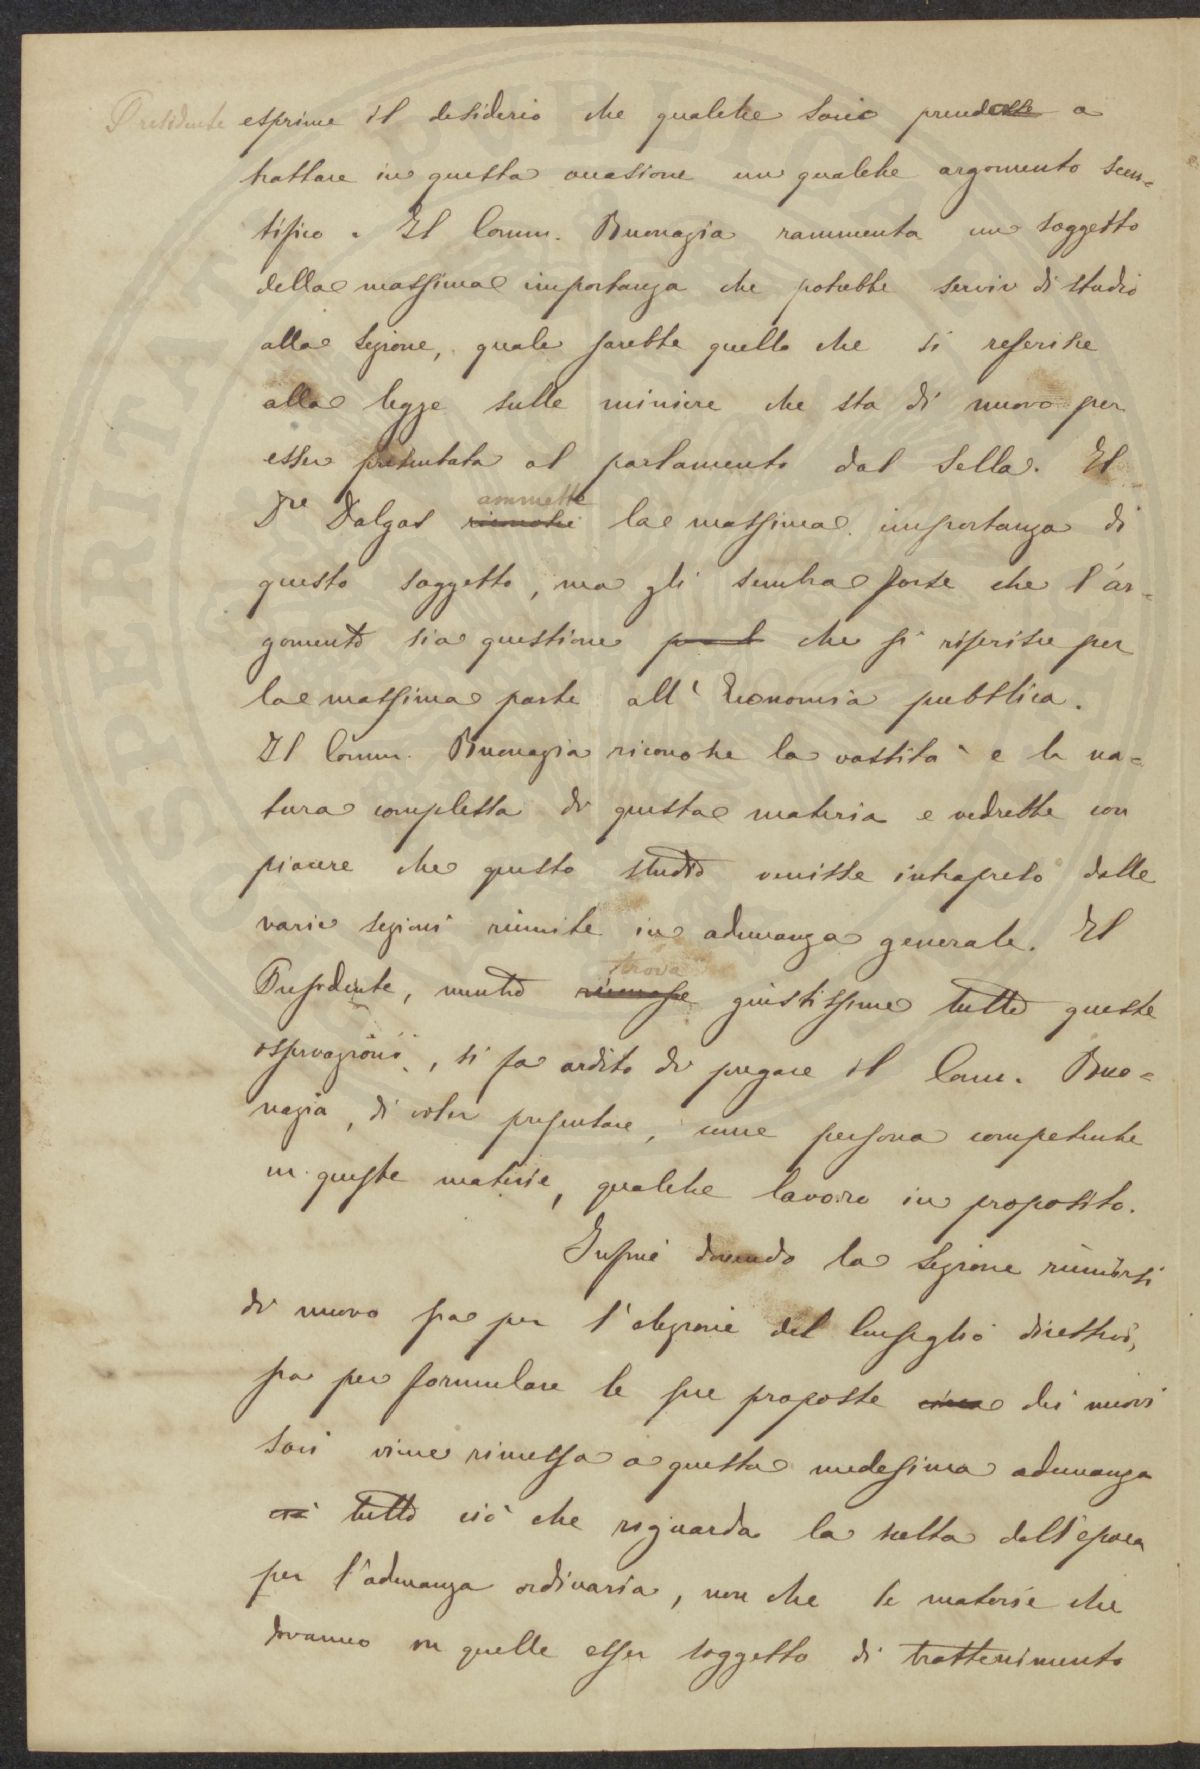 Presidente esprime il desiderio che qualche socio prendesse a
trattare in questa occasione un qualche argomento scien=
tifico. Il Comm. Buonazia rammenta un soggetto
della massima importanza che potrebbe servir di studio
alla Sezione, quale sarebbe quello che si referisce
alla legge sulle miniere che sta di nuovo per
esser presentata al parlamento dal Sella. Il
ammette
Dre Dalgas riconosce la massima importanza di
questo soggetto, ma gli sembra forse che l'ar=
gomento sia questione che si riferisce per
la massima parte all'Economia pubblica.
Il Comm. Buonazia riconosce la vastità e la na=
tura complessa di questa materia e vedrebbe con
piacere che questo studio venisse intrapreso dalle
varie sezioni riunite in adunanza generale. Il
trova
Presidente, mentre giustissime tutte queste
osservazioni, si fa ardito di pregare il Comm. Buo=
nazia, di voler presentare, come persona competente
in queste materie, qualche lavoro in proposito.
Infine dovendo la Sezione riunirsi
di nuovo sia per l'elezione del Consiglio direttivo,
sia per formulare le sue proposte circa dei nuovi
soci viene rimessa a questa medesima adunanza
tutto ciò che riguarda la scelta dell'epoca
per l'adunanza ordinaria, non che le materie che
dovranno in quelle esser soggetto di trattenimento
SOSPITAT